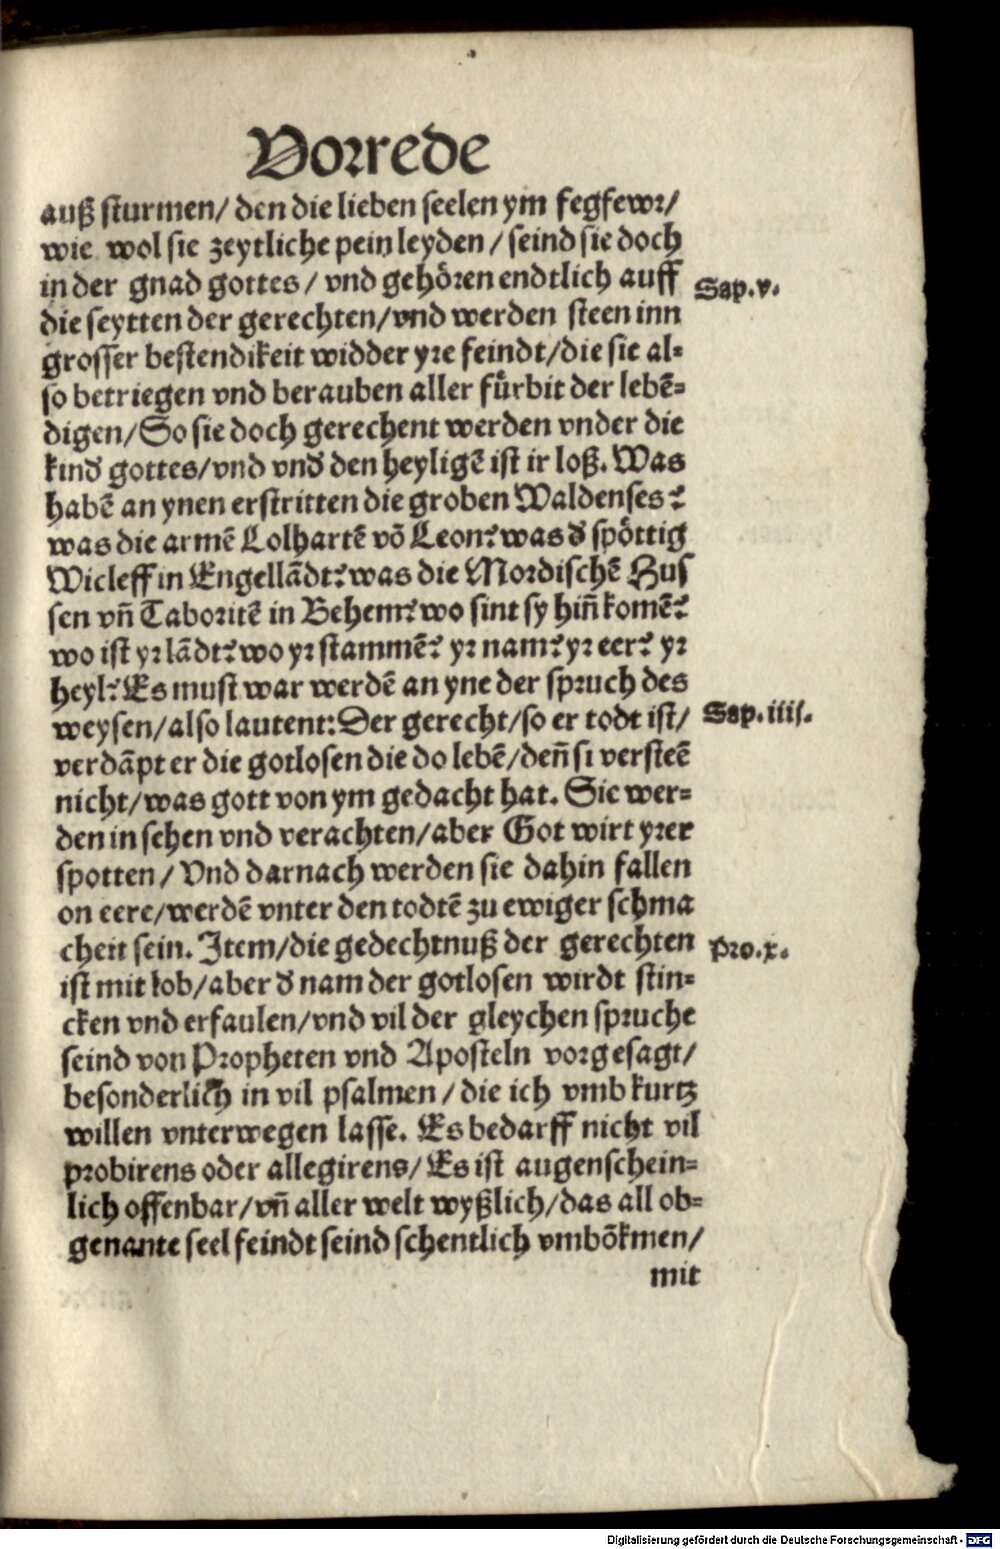 Vorrede
auß sturmen/ den die lieben seelen ym fegfewr/
wie wol sie zeytliche pein leyden / seind sie doch
in der gnad gottes / vnd gehören endtlich auff
Sap.v.
die seytten der gerechten/vnd werden steen inn
grosser bestendikeit widder yre feindt/die sie al⸗
so betriegen vnd berauben aller fürbit der lebē⸗
digen/So sie doch gerechent werden vnder die
kind gottes/vnd vnd̕ den heyligē ist ir loß. Was
habē an ynen erstritten die groben Waldenses?
was die armē Lolhartē vō Leon? was d̕ spöttig
Wicleff in Engellādt? was die Mordischē Hus
sen vn̄ Taboritē in Behem? wo sint sy hin̄ komē?
wo ist yr lādt? wo yr stammē? yr nam? yr eer? yr
heyl? Es must war werdē an yne der spruch des
weysen/also lautent: Der gerecht/so er todt ist/
Sap.iiij.
verdāpt er die gotlosen die do lebē/den̄ si versteē
nicht/was gott von ym gedacht hat. Sie wer⸗
den in sehen vnd verachten/aber Got wirt yrer
spotten / Vnd darnach werden sie dahin fallen
on eere/werdē vnter den todtē zu ewiger schma
cheit sein. Item/die gedechtnuß der gerechten
Pro.x.
ist mit lob/aber d̕ nam der gotlosen wirdt stin⸗
cken vnd erfaulen/vnd vil der gleychen spruche
seind von Propheten vnd Aposteln vorgesagt/
besonderlich in vil psalmen / die ich vmb kurtz
willen vnterwegen lasse. Es bedarff nicht vil
probirens oder allegirens/ Es ist augenschein⸗
lich offenbar/vn̄ aller welt wyßlich/das all ob⸗
genante seel feindt seind schentlich vmbōkmen/
mit
Digitalisierung gefördert durch die Deutsche Forschungsgemeinschaft - DFG